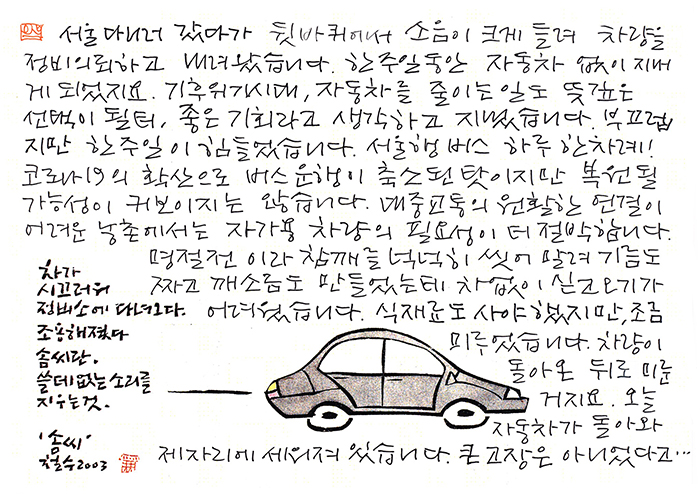 서울 다니러 갔다가 뒷바퀴에서 소음이 크게 들려 차량을
정비의뢰하고 내려왔습니다. 한주일동안 자동차 없이 지내
게 되었지요. 기후위기시대, 자동차를 줄이는 일도 뜻깊은
선택이 될터, 좋은 기회라고 생각하고 지냈습니다. 부끄럽
지만 한주일이 힘들었습니다. 서울행 버스 하루 한차례!
코로나19의 확산으로 버스운행이 축소된 탓이지만 복원될
가능성이 커보이지는 않습니다. 대중교통의 원활한 연결이
어려운 농촌에서는 자가용 차량의 필요성이 더 절박합니다.
명절전 이라 참깨를 넉넉히 씻어 말려 기름도
짜고 깨소금도 만들었는데 차없이 싣고오기가
어려웠습니다. 식재료도 사야했지만, 조금
미루었습니다. 차량이
돌아온 뒤로 미룬
거지요. 오늘
자동차가 돌아와
제자리에 세워져 있습니다. 큰 고장은 아니었다고…
차가
시끄러워
정비소에 다녀오다.
조용해졌다
솜씨란.
쓸데없는 소리를
지우는것.
'솜씨'
철수2003